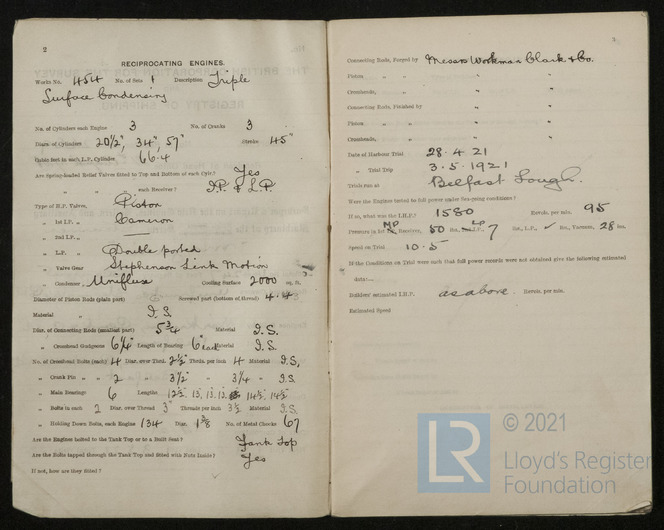 2
RECIPROCATING ENGINES.
Works No. 454 No. of Sets 1 Description Triple
Surface Condensing
No. of Cylinders each Engine 3 No. of Cranks 3
Diars. of Cylinders 20½", 34", 57" Stroke 45"
Cubic feet in each L.P. Cylinder 66.4
Are Spring-loaded Relief Valves fitted to Top and Bottom of each Cylr.? Yes
" " each Receiver? I.P. & L.P.
Type of H.P. Valves, Piston
" 1st I.P. " Cameron
" 2nd I.P. "
" L.P. " Double ported
" Valve Gear Stephenson Link Motion
" Condenser Uniflux Cooling Surface 2000 sq. ft.
Diameter of Piston Rods (plain part) Screwed part (bottom of thread)
Material " I.S.
Diar. of Connecting Rods (smallest part) 5¾ Material I.S.
" Crosshead Gudgeons 6¼" Length of Bearing 6" each Material I.S.
No. of Crosshead Bolts (each) 4 Diar. over Thrd. 2½" Thrds. per inch 4 Material I.S.
" Crank Pin " " 2 " 3½" " 3¼ " I.S.
" Main Bearings 6 Lengths
" Bolts in each 2 Diar. over Thread 3" Threads per inch 3½ Material I.S.
" Holding Down Bolts, each Engine 134 Diar. 1⅜ No. of Metal Chocks 67
Are the Engines bolted to the Tank Top or to a Built Seat? Tank Top
Are the Bolts tapped through the Tank Top and fitted with Nuts Inside? Yes
If not, how are they fitted?
Connecting Rods, Forged by Messrs Workman Clark & Co.
Piston " " "
Crossheads, " "
Connecting Rods, Finished by "
Piston " " "
Crossheads, " "
Date of Harbour Trial 28.4.21
" Trial Trip 3.5.1921
Trials run at Belfast Lough.
Were the Engines tested to full power under Sea-going conditions?
If so, what was the I.H.P.? 1580 Revols. per min. 95
Pressure in 1st Receiver, 50 lbs., L.P., 7 lbs., L.P., lbs., Vacuum, 28 ins.
Speed on Trial 10.5
If the Conditions on Trial were such that full power records were not obtained give the following estimated
data:—
Builders' estimated I.H.P. as above. Revols. per min.
Estimated Speed
LR © 2021
Lloyd's Register
Foundation